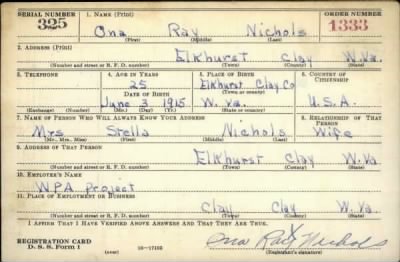 SERIAL NUMBER 1. NAME (Print) ORDER NUMBER
325 Ona Ray Nichols 1333
(First) (Middle) (Last)
2. ADDRESS (Print)
Elkhurst Clay W.Va.
(Number and street or R. F. D. number) (Town) (County) (State)
3. TELEPHONE 4. AGE IN YEARS 5. PLACE OF BIRTH 6. COUNTRY OF CITIZENSHIP
25 Elkhurst Clay Co
DATE OF BIRTH (Town or county)
June 3 1915 W. Va. U.S.A.
(Exchange) (Number) (Mo.) (Day) (Yr.) (State or country)
7. NAME OF PERSON WHO WILL ALWAYS KNOW YOUR ADDRESS 8. RELATIONSHIP OF THAT PERSON
Mrs Stella Nichols Wife
(Mr., Mrs., Miss) (First) (Middle) (Last)
9. ADDRESS OF THAT PERSON
Elkhurst Clay W.Va
(Number and street or R. F. D. number) (Town) (County) (State)
10. EMPLOYER'S NAME
WPA Project
11. PLACE OF EMPLOYMENT OR BUSINESS
Clay Clay W.Va.
(Number and street or R. F. D. number) (Town) (County) (State)
I AFFIRM THAT I HAVE VERIFIED ABOVE ANSWERS AND THAT THEY ARE TRUE.
REGISTRATION CARD
D. S. S. Form 1 (over) 16—17105 Ona Ray Nichols
(Registrant's signature)